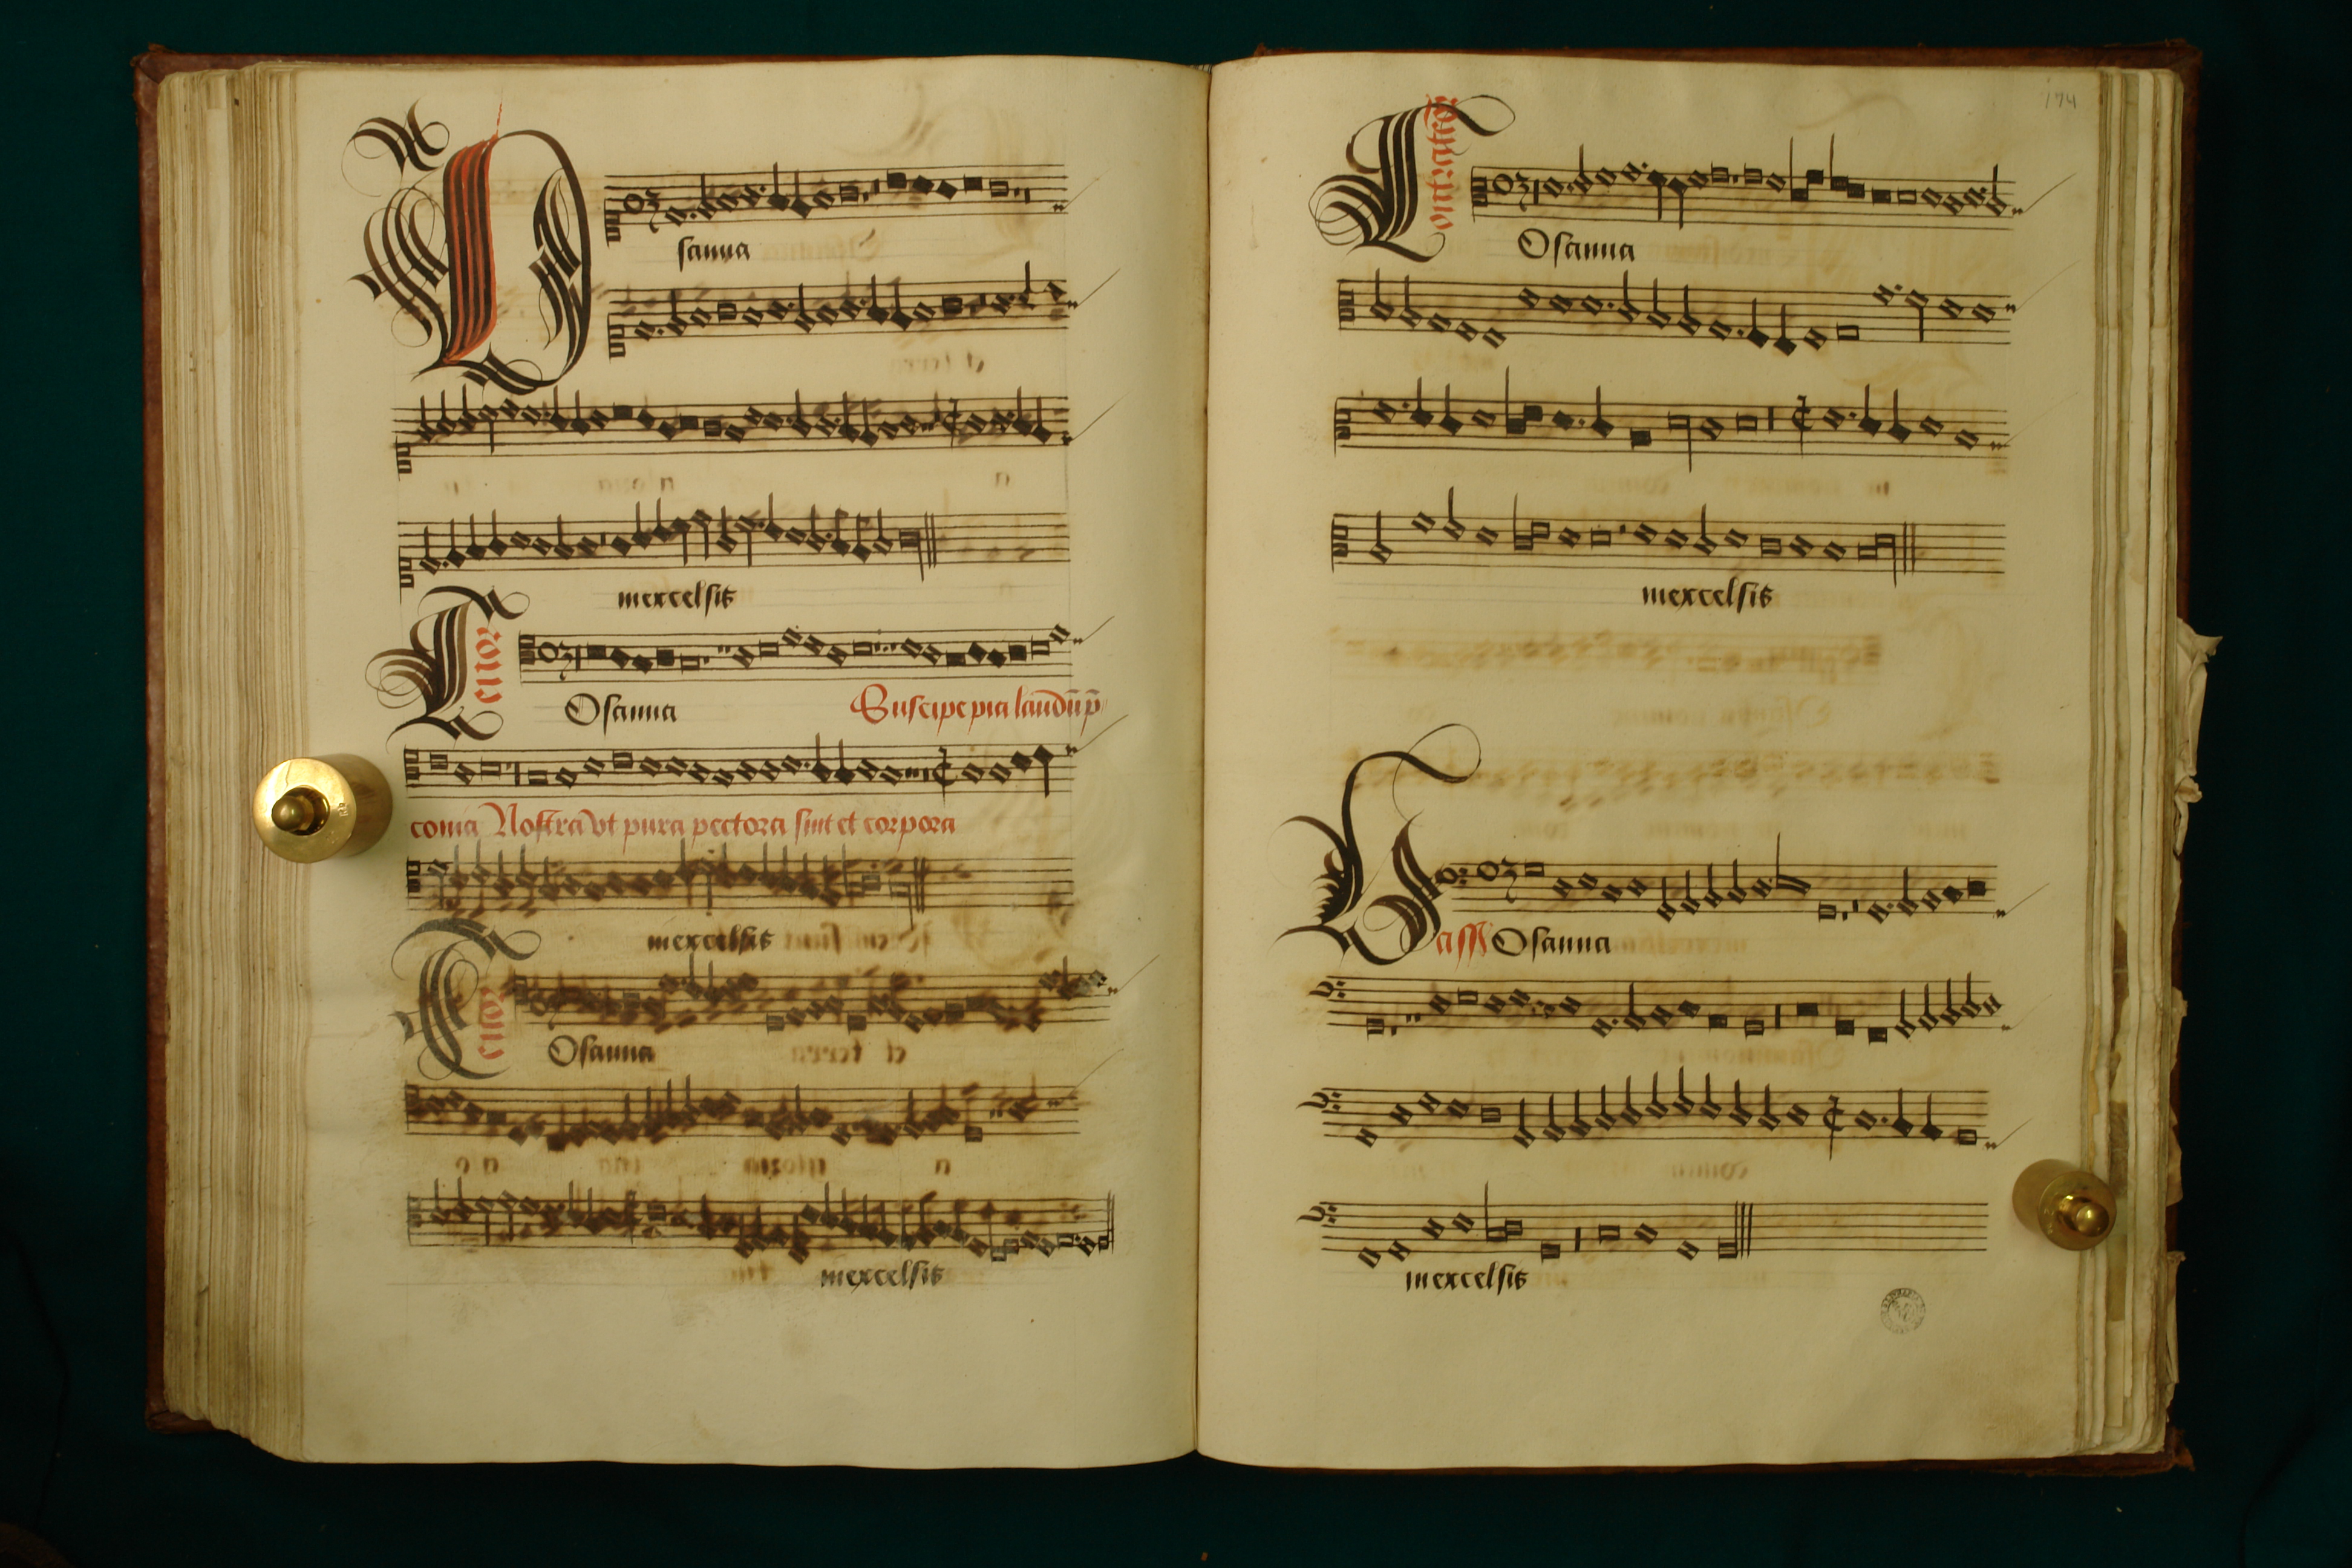 Osanna
inexcelsis
Tenor
Osanna Suscipe pia laudū p̄
conia Nostra vt pura pectora sint et corpora
inexcelsis
Tenor
Osanna
inexcelsis
174
Contraten̄
Osanna
inexcelsis
Bassꝰ Osanna
inexcelsis